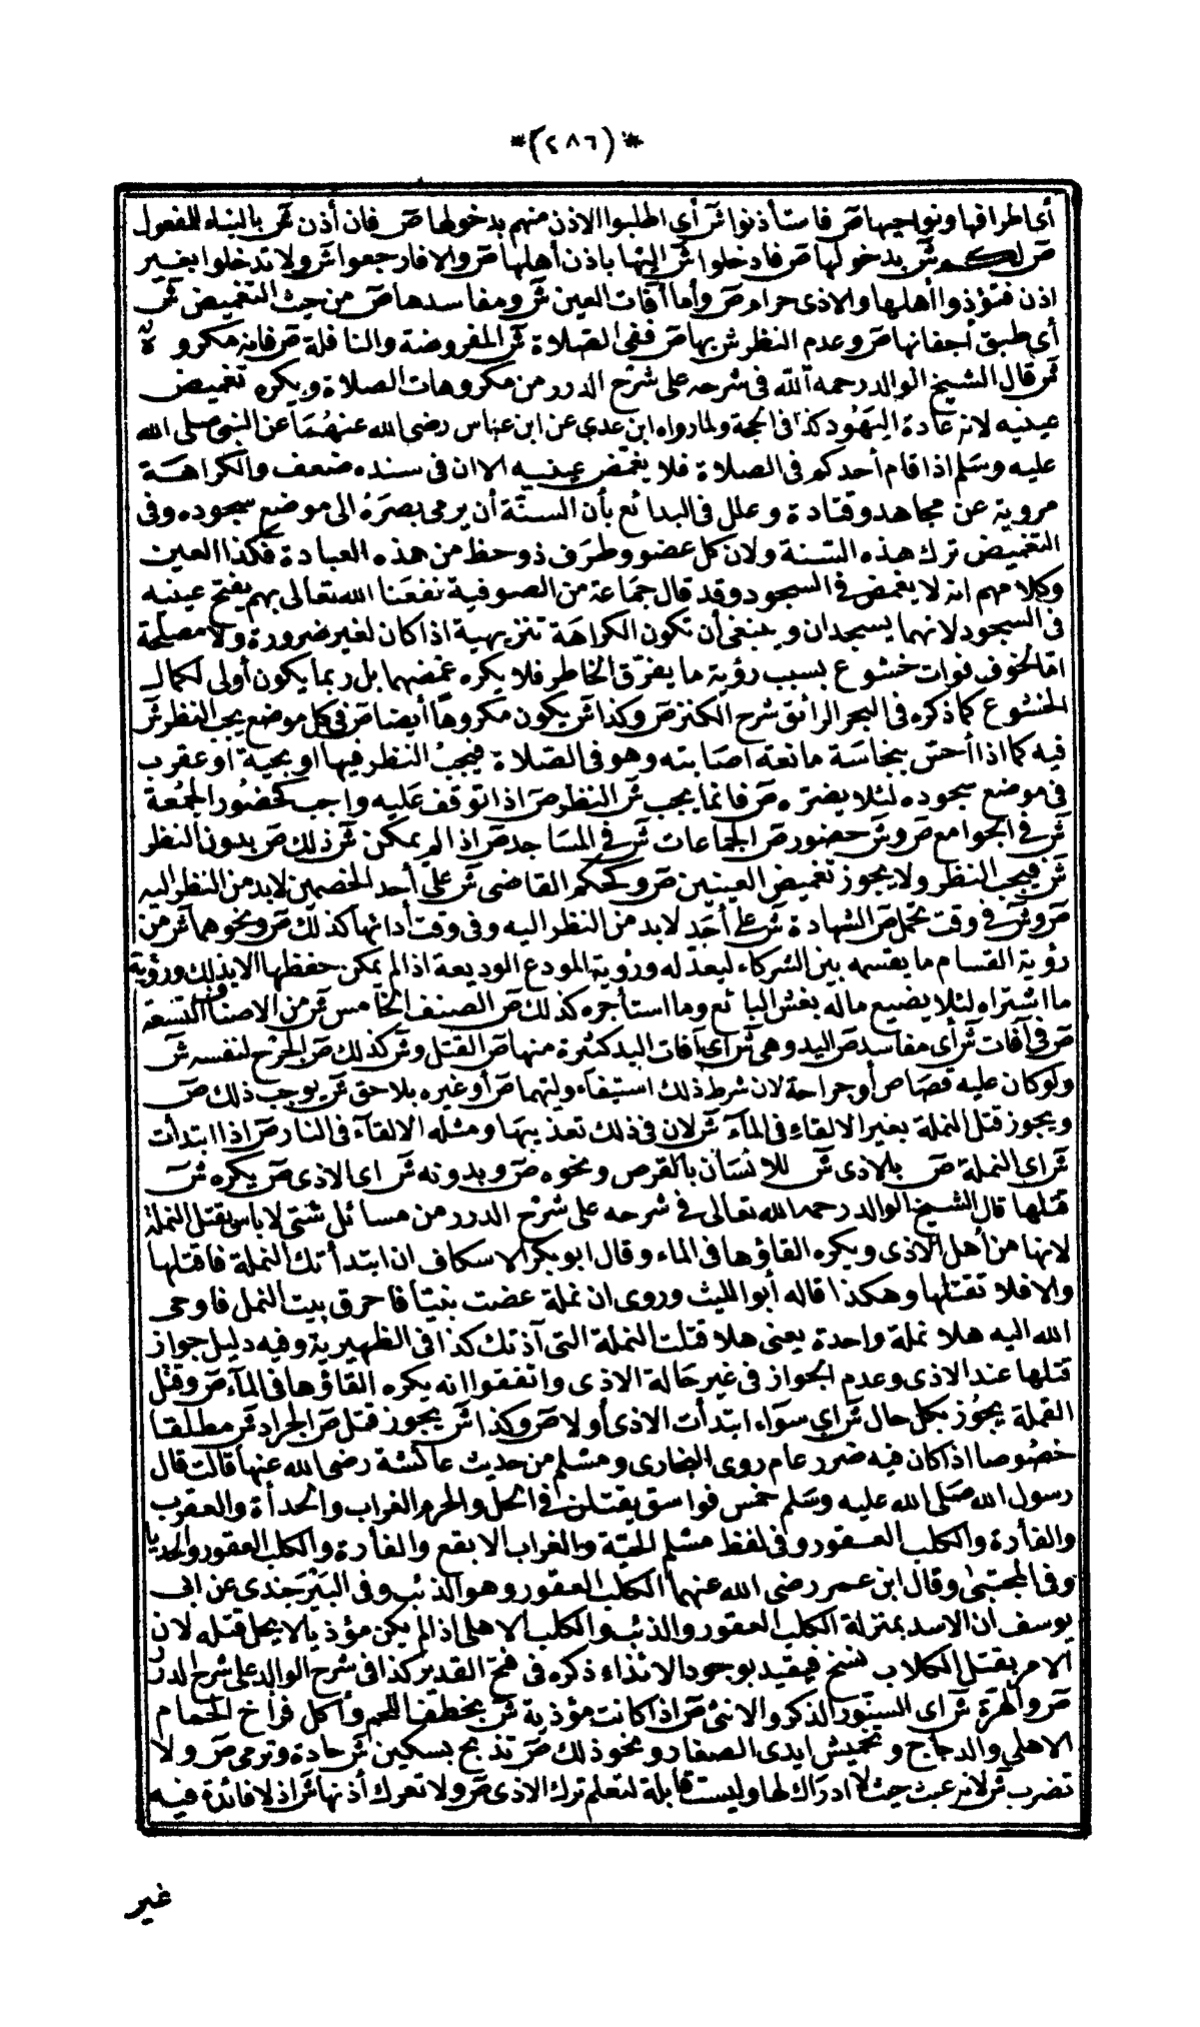 *(٢٨٦)*
أى اطرافها ونواحيها ص فاستأذنوا ش أى اطلبوا الاذن منهم بدخولها ص فان أذن ش بالبناء للمفعول
ص لكم ش بدخولها ص فادخلوا ش اليها باذن أهلها ص والا فارجعوا ش ولا تدخلوا بغير
اذن فتؤذوا أهلها والاذى حرام ص وأما آفات العين ش ومفاسدها ص من حيث التغميض ش
أى طبق أجفانها ص وعدم النظر ش بها ص ففى الصلاة ش المفروضة والنافلة ص فانه مكروه
ش قال الشيخ الوالد رحمه الله فى شرحه على شرح الدرر من مكروهات الصلاة ويكره تغميض
عينيه لانه عادة اليهود كذا فى الحجة ولما رواه ابن عدى عن ابن عباس رضى الله عنهما عن النبى صلى الله
عليه وسلم اذا قام أحدكم فى الصلاة فلا يغمض عينيه الا ان فى سنده ضعف والكراهة
مروية عن مجاهد وقتادة وعلل فى البدائع بأن السنة أن يرمى بصره الى موضع سجوده وفى
التغميض ترك هذه السنة ولان كل عضو وطرف ذو حظ من هذه العبادة فكذا العين
وكلامهم انه لا يغمض فى السجود وقد قال جماعة من الصوفية نفعنا الله تعالى بهم يفتح عينيه
فى السجود لانهما يسجدان وينبغى أن تكون الكراهة تنزيهية اذا كان لغير ضرورة ولا مصلحة
اما لخوف فوات خشوع بسبب رؤية ما يفرق الخاطر فلا يكره غمضهما بل ربما يكون أولى لكمال
الخشوع كما ذكره فى البحر الرائق شرح الكنز ص وكذا ش يكون مكروها أيضا ص فى كل موضع يجب النظر ش
فيه كما اذا أحس بنجاسة مانعة اصابته وهو فى الصلاة فيجب النظر فيها او بحية او عقرب
فى موضع سجوده لئلا يضره ص فانما يجب ش النظر ص اذا توقف عليه واجب كحضور الجمعة
ش فى الجوامع ص و ش حضور ص الجماعات ش فى المساجد ص اذا لم يمكن ش ذلك ص بدون النظر
ش فيجب النظر ولا يجوز تغميض العينين ص وكحكم القاضى ش على أحد الخصمين لا بد من النظر اليه
ص و ش فى وقت تحمل ص الشهادة ش على أحد لا بد من النظر اليه وفى وقت أدائها كذلك ص ونحوهما ش من
رؤية القسام ما يقسمه بين الشركاء ليعدله ورؤية المودع الوديعة اذا لم يمكن حفظها الا بذلك ورؤية
ما اشتراه لئلا يضيع ماله بغش البائع وما استأجره كذلك ص الصنف الخامس ش من الاصناف التسعة
ص فى آفات ش أى مفاسد ص اليد وهى ش أى آفات اليد كثيرة منها ص القتل و ش كذلك ص الجرح لنفسه ش
ولو كان عليه قصاص أو جراحة لان شرط ذلك استيفاء وليهما ص أو غيره بلا حق ش يوجب ذلك ص
ويجوز قتل النملة بغير الالقاء فى الماء ش لان فى ذلك تعذيبها ومثله الالقاء فى النار ص اذا ابتدأت
ش اى النملة ص بالاذى ش للانسان بالقرص ونحوه ص وبدونه ش اى الاذى ص يكره ش
قتلها قال الشيخ الوالد رحمه الله تعالى فى شرحه على شرح الدرر من مسائل شتى لا باس بقتل النملة
لانها من أهل الاذى ويكره القاؤها فى الماء وقال ابو بكر الاسكاف ان ابتدأتك النملة فاقتلها
والا فلا تقتلها وهكذا قاله أبو الليث وروى ان نملة عضت نبيا فاحرق بيت النمل فاوحى
الله اليه هلا نملة واحدة يعنى هلا قتلت النملة التى آذتك كذا فى الظهيرية وفيه دليل جواز
قتلها عند الاذى وعدم الجواز فى غير حالة الاذى واتفقوا انه يكره القاؤها فى الماء ص وقتل
القملة يجوز بكل حال ش اى سواء ابتدأت الاذى أو لا ص وكذا ش يجوز قتل ص الجراد ش مطلقا
خصوصا اذ كان فيه ضرر عام روى البخارى ومسلم من حديث عائشة رضى الله عنها قالت قال
رسول الله صلى الله عليه وسلم خمس فواسق يقتلن فى الحل والحرم الغراب والحدأة والعقرب
والفأرة والكلب العقور وفى لفظ مسلم الحية والغراب الابقع والفأرة والكلب العقور والحديا
وفى المجتبى وقال ابن عمر رضى الله عنهما الكلب العقور وهو الذئب وفى البيرجندى عن ابى
يوسف ان الاسد بمنزلة الكلب العقور والذئب والكلب الاهلى اذا لم يكن مؤذيا لا يحل قتله لان
الامر بقتل الكلاب نسخ فيقيد بوجود الايذاء ذكره فى فتح القدير كذا فى شرح الوالد على شرح الدرر
ص والهرة ش اى السنور الذكر والانثى ص اذا كانت مؤذية ش بخطف اللحم وأكل فراخ الحمام
الاهلى والدجاج وتخميش ايدى الصغار ونحو ذلك ص تذبح بسكين ش حادة وترمى ص ولا
تضرب ش لانه عبث حيث لا ادراك لها وليست قابلة لتعلم ترك الاذى ص ولا تعرك أذنها ش اذ لا فائدة فيه
غير